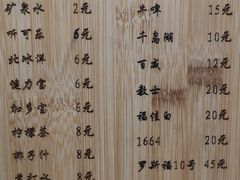 矿泉水 2元
听可乐 6元
北冰洋 6元
健力宝 6元
加多宝 6元
柠檬茶 8元
椰子汁 8元
8元
15元
千岛湖 10元
百威 12元
教士 20元
福佳白 20元
1664 20元
罗斯福10号 45元